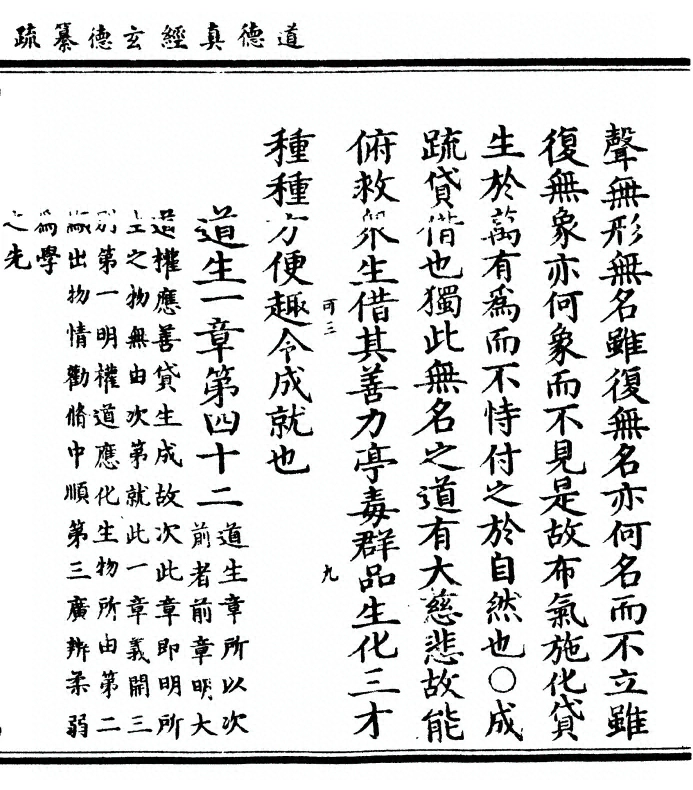 道德真經玄德纂疏
聲無形無名雖復無名亦何名而不立雖
復無象亦何象而不見是故布氣施化貸
生於萬有為而不恃付之於自然也〇成
疏貸借也獨此無名之道有大慈悲故能
俯救眾生借其善力亭毒群品生化三才
可三
九
種種方便趣令成就也
道生一章第四十二
道生章所以次
前者前章明大
道權應善貸生成故次此章即明所
生之物無由次第就此一章義開三
別第一明權道應化生物所由第二
出物情勸脩中順第三廣辨柔弱
為學
之先